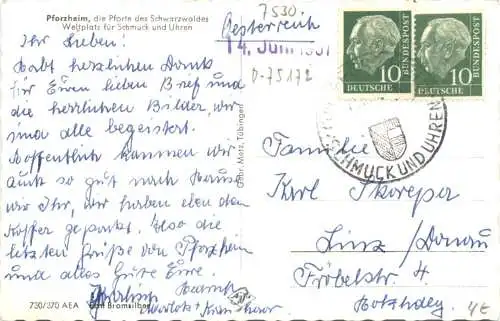 Pforzheim, die Pforte des Schwarzwaldes
Weltplatz für Schmuck und Uhren
7530
Österreich
14. Juni 1957
D-75172
Ihr Lieben!
Habt herzlichen Dank
für Euren lieben Brief und
die herrlichen Bilder, wir
sind alle begeistert.
Hoffentlich kommen wir
auch so gut nach Hause
wie Ihr, wir haben eben den
Koffer gepackt. Also die
letzten Grüße von Pforzheim
und alles Gute Eure
730/370 AEA
Bromsilber
Gebr. Metz, Tübingen
10
DEUTSCHE
BUNDESPOST
10
DEUTSCHE
BUNDESPOST
SCHMUCK UND UHREN
Familie
Karl
Linz / Donau
Fröbelstr. 4